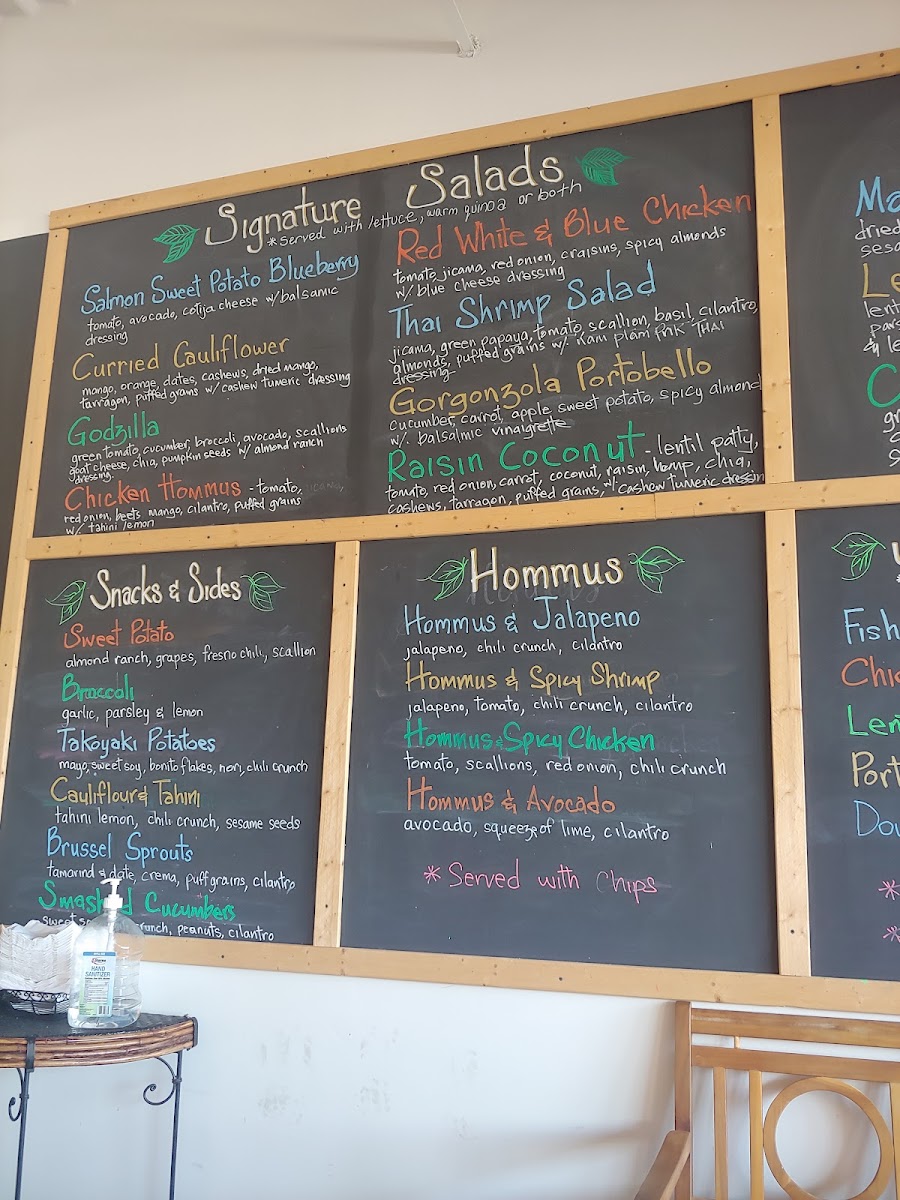 Signature Salads
*Served with lettuce, warm quinoa or both
Salmon Sweet Potato Blueberry
tomato, avocado, cotija cheese w/ balsamic
dressing
Curried Cauliflower
mango, orange, dates, cashews, dried mango,
tarragon, puffed grains w/ cashew tumeric dressing
Godzilla
green tomato, cucumber, broccoli, avocado, scallions
goat cheese, chia, pumpkin seeds w/ almond ranch
dressing
Chicken Hommus - tomato, jicama,
red onion, beets, mango, cilantro, puffed grains
w/ tahini lemon
Red White & Blue Chicken
tomato, jicama, red onion, craisins, spicy almonds
w/ blue cheese dressing
Thai Shrimp Salad
jicama, green papaya, tomato, scallion, basil, cilantro,
almonds, puffed grains w/ Nam Plam Prik Thai
dressing
Gorgonzola Portobello
cucumber, carrot, apple, sweet potato, spicy almond
w/. balsalmic vinaigrette
Raisin Coconut - lentil patty,
tomato, red onion, carrot, coconut, raisin, hemp, chia,
cashews, tarragon, puffed grains, w/ cashew tumeric dressin
Snacks & Sides
Sweet Potato
almond ranch, grapes, fresno chili, scallion
Broccoli
garlic, parsley & lemon
Takoyaki Potatoes
mayo, sweet soy, bonito flakes, nori, chili crunch
Cauliflour & Tahini
tahini lemon, chili crunch, sesame seeds
Brussel Sprouts
tamarind & date, crema, puff grains, cilantro
Smashed Cucumbers
sweet so runch, peanuts, cilantro
Hommus
Hommus & Jalapeno
jalapeno, chili crunch, cilantro
Hommus & Spicy Shrimp
jalapeno, tomato, chili crunch, cilantro
Hommus & Spicy Chicken
tomato, scallions, red onion, chili crunch
Hommus & Avocado
avocado, squeeze of lime, cilantro
* Served with Chips
Ma
dried
sesa
Le
lent
pars
& le
C
gr
Fish
Chic
Len
Port
Dou
*
*
HAND
SANITIZER